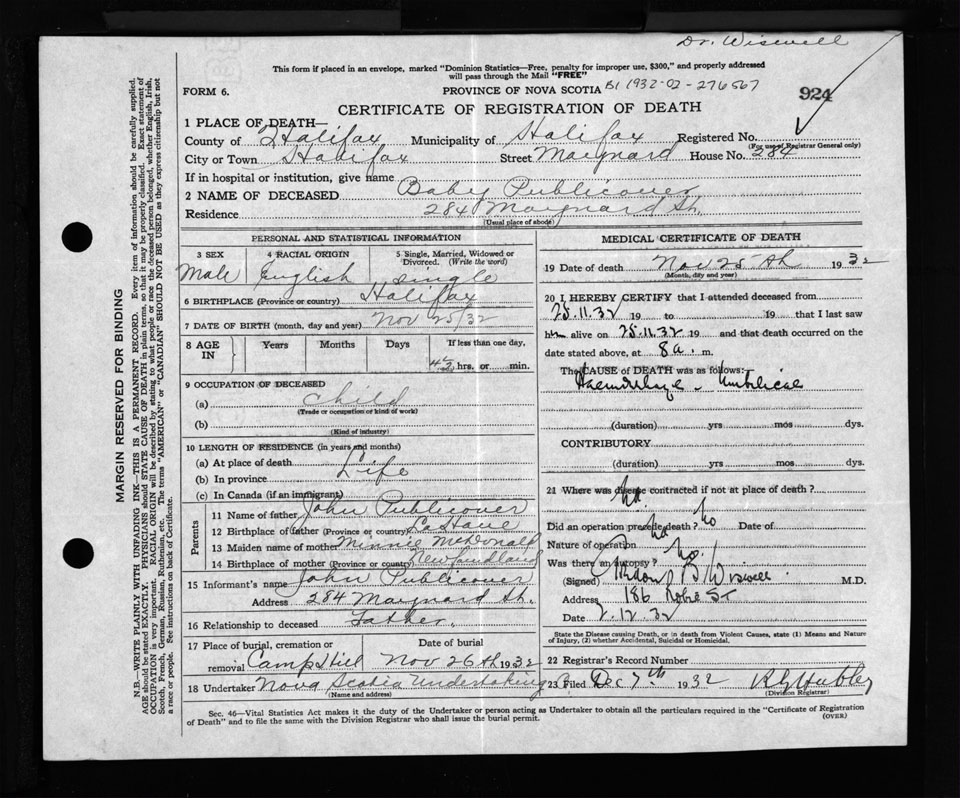 Dr. Wiswell
This form if placed in an envelope, marked "Dominion Statistics—Free, penalty for improper use, $300," and properly addressed
will pass through the Mail "FREE"
FORM 6.
PROVINCE OF NOVA SCOTIA B1 1932-02-276567
924
CERTIFICATE OF REGISTRATION OF DEATH
1 PLACE OF DEATH—
County of Halifax Municipality of Halifax Registered No.
(For use of Registrar General only)
City or Town Halifax Street Maynard House No. 284
If in hospital or institution, give name
2 NAME OF DECEASED Baby Publicover
Residence 284 Maynard St.
(Usual place of abode)
PERSONAL AND STATISTICAL INFORMATION
3 SEX 4 RACIAL ORIGIN 5 Single, Married, Widowed or
Divorced. (Write the word)
Male English Single
6 BIRTHPLACE (Province or country) Halifax
7 DATE OF BIRTH (month, day and year) Nov 25/32
8 AGE IN Years Months Days If less than one day,
4½ hrs. or min.
9 OCCUPATION OF DECEASED
(a) Child
(Trade or occupation or kind of work)
(b)
(Kind of industry)
10 LENGTH OF RESIDENCE (in years and months)
(a) At place of death
(b) In province Life
(c) In Canada (if an immigrant)
Parents
11 Name of father John Publicover
12 Birthplace of father (Province or country) LaHave
13 Maiden name of mother Minnie McDonald
14 Birthplace of mother (Province or country) Newfoundland
15 Informant's name John Publicover
Address 284 Maynard St.
16 Relationship to deceased Father.
17 Place of burial, cremation or Date of burial
removal Camp Hill Nov 26th 1932
18 Undertaker Nova Scotia Undertaking
(Name and address)
MEDICAL CERTIFICATE OF DEATH
19 Date of death Nov 25th 1932
(Month, day and year)
20 I HEREBY CERTIFY that I attended deceased from
25.11.32 19 to 19 that I last saw
h alive on 25.11.32 19 and that death occurred on
date stated above, at 8 a. m.
The CAUSE of DEATH was as follows:
Haemorrhage - Umbilical
(duration) yrs mos dys.
CONTRIBUTORY
(duration) yrs mos dys.
21 Where was disease contracted if not at place of death?
no
Did an operation precede death? no Date of
Nature of operation no
Was there an autopsy? no.
(Signed) B Wiswell M.D.
Address 186 Robie St
Date 2.12.32
State the Disease causing Death, or in death from Violent Causes, state (1) Means and Nature
of Injury, (2) whether Accidental, Suicidal or Homicidal.
22 Registrar's Record Number
23 Filed Dec 7th 1932 Hubley
(Division Registrar)
Sec. 46—Vital Statistics Act makes it the duty of the Undertaker or person acting as Undertaker to obtain all the particulars required in the "Certificate of Registration
of Death" and to file the same with the Division Registrar who shall issue the burial permit.
(OVER)
MARGIN RESERVED FOR BINDING
N.B.—WRITE PLAINLY WITH UNFADING INK—THIS IS A PERMANENT RECORD. Every item of information should be carefully supplied.
AGE should be stated EXACTLY. PHYSICIANS should STATE CAUSE OF DEATH in plain terms, so that it may be properly classified. Exact statement of
OCCUPATION is very important. RACIAL ORIGIN will be described by stating to what people or race the deceased person belonged, whether English, Irish,
Scotch, French, German, Russian, Ruthenian, etc. The terms "AMERICAN" or "CANADIAN" SHOULD NOT BE USED as they express citizenship but not
a race or people. See instructions on back of Certificate.